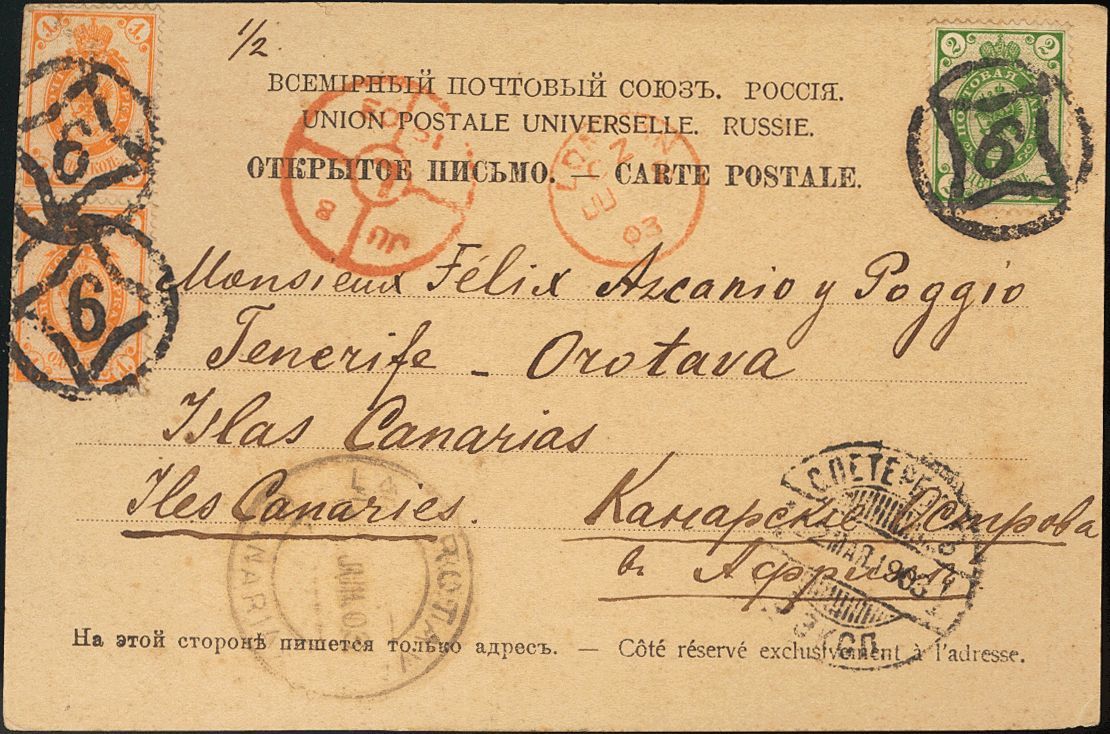 1/2
ВСЕМІРНЫЙ ПОЧТОВЫЙ СОЮЗЪ. РОССІЯ.
UNION POSTALE UNIVERSELLE. RUSSIE.
ОТКРЫТОЕ ПИСЬМО. — CARTE POSTALE.
1 1
2 2
6
6
6
LONDON
03
Monsieur Félix Azcanio y Poggio
Tenerife - Orotava
Islas Canarias
Iles Canaries. Канарскіе Острова
въ Африкѣ
С.ПЕТЕРБУРГЪ
МАЯ 1903
ЭКСП
На этой сторонѣ пишется только адресъ. — Côté réservé exclusivement à l'adresse.